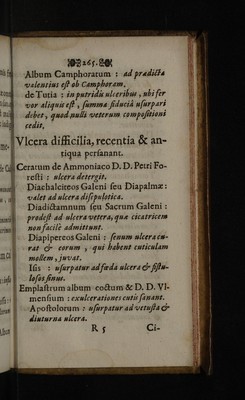 265.
Album Camphoratum : ad prædicta
valentius est ob Camphoram.
de Tutia : in putridis ulceribus, ubi fer
vor aliquis est, summa fiducia usurpari
debet, quod nulli veterum compositioni
cedit.
Vlcera difficilia, recentia & an-
tiqua persanant.
Ceratum de Ammoniaco D. D. Petri Fo-
resti : ulcera detergit.
Diachalciteos Galeni seu Diapalmæ :
valet ad ulcera disepulotica.
Diadictamnum seu Sacrum Galeni :
prodest ad ulcera vetera, quæ cicatricem
non facilè admittunt.
Diapipereos Galeni : senum ulcera cu-
rat & eorum , qui habent cuticulam
mollem, juvat.
Isis : usurpatur ad fœda ulcera & fistu-
losos sinus.
Emplastrum album coctum & D. D. VI-
mensium : exulcerationes cutis sanant.
Apostolorum : usurpatur ad vetusta &
diuturna ulcera.
R 5 Ci-